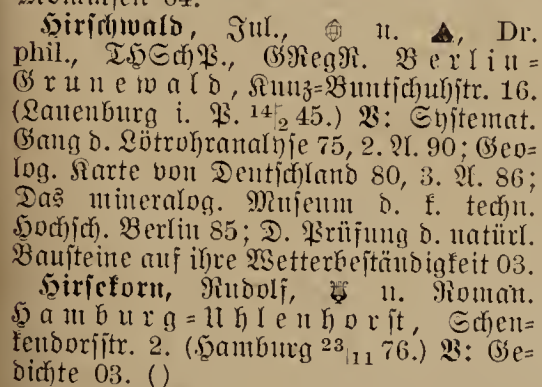 Hirschwald, Jul., u. ▲, Dr.
phil., THSchP., GRegR. Berlin=
Grunewald, Kunz=Buntschuhstr. 16.
(Lauenburg i. P. 14|2 45.) V: Systemat.
Gang d. Lötrohranalyse 75, 2. A. 90; Geo=
log. Karte von Deutschland 80, 3. A. 86;
Das mineralog. Museum d. k. techn.
Hochsch. Berlin 85; D. Prüfung d. natürl.
Bausteine auf ihre Wetterbeständigkeit 03.
Hirsekorn, Rudolf, u. Roman.
Hamburg=Uhlenhorst, Schen=
kendorfstr. 2. (Hamburg 23|11 76.) V: Ge=
dichte 03. ()